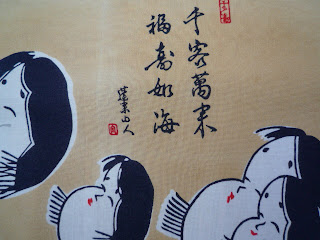 千客萬来
福寿如海
蓬莱山人